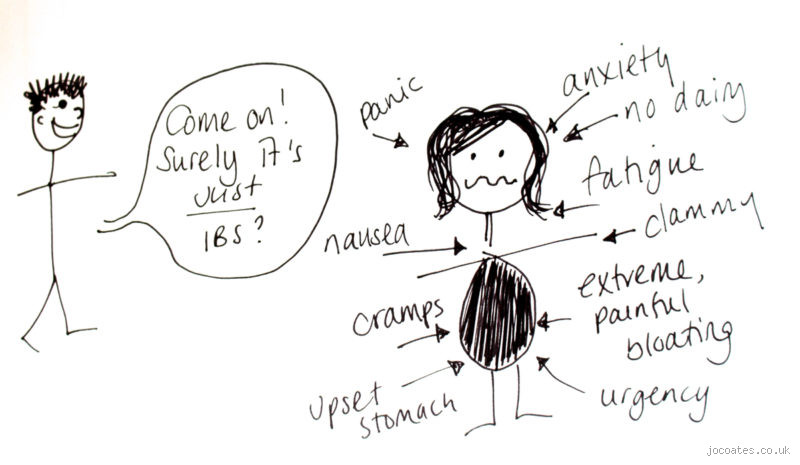 Come on!
Surely it's
just
IBS?
panic
anxiety
no dairy
fatigue
clammy
nausea
extreme,
painful
bloating
cramps
upset
stomach
urgency
jocoates.co.uk